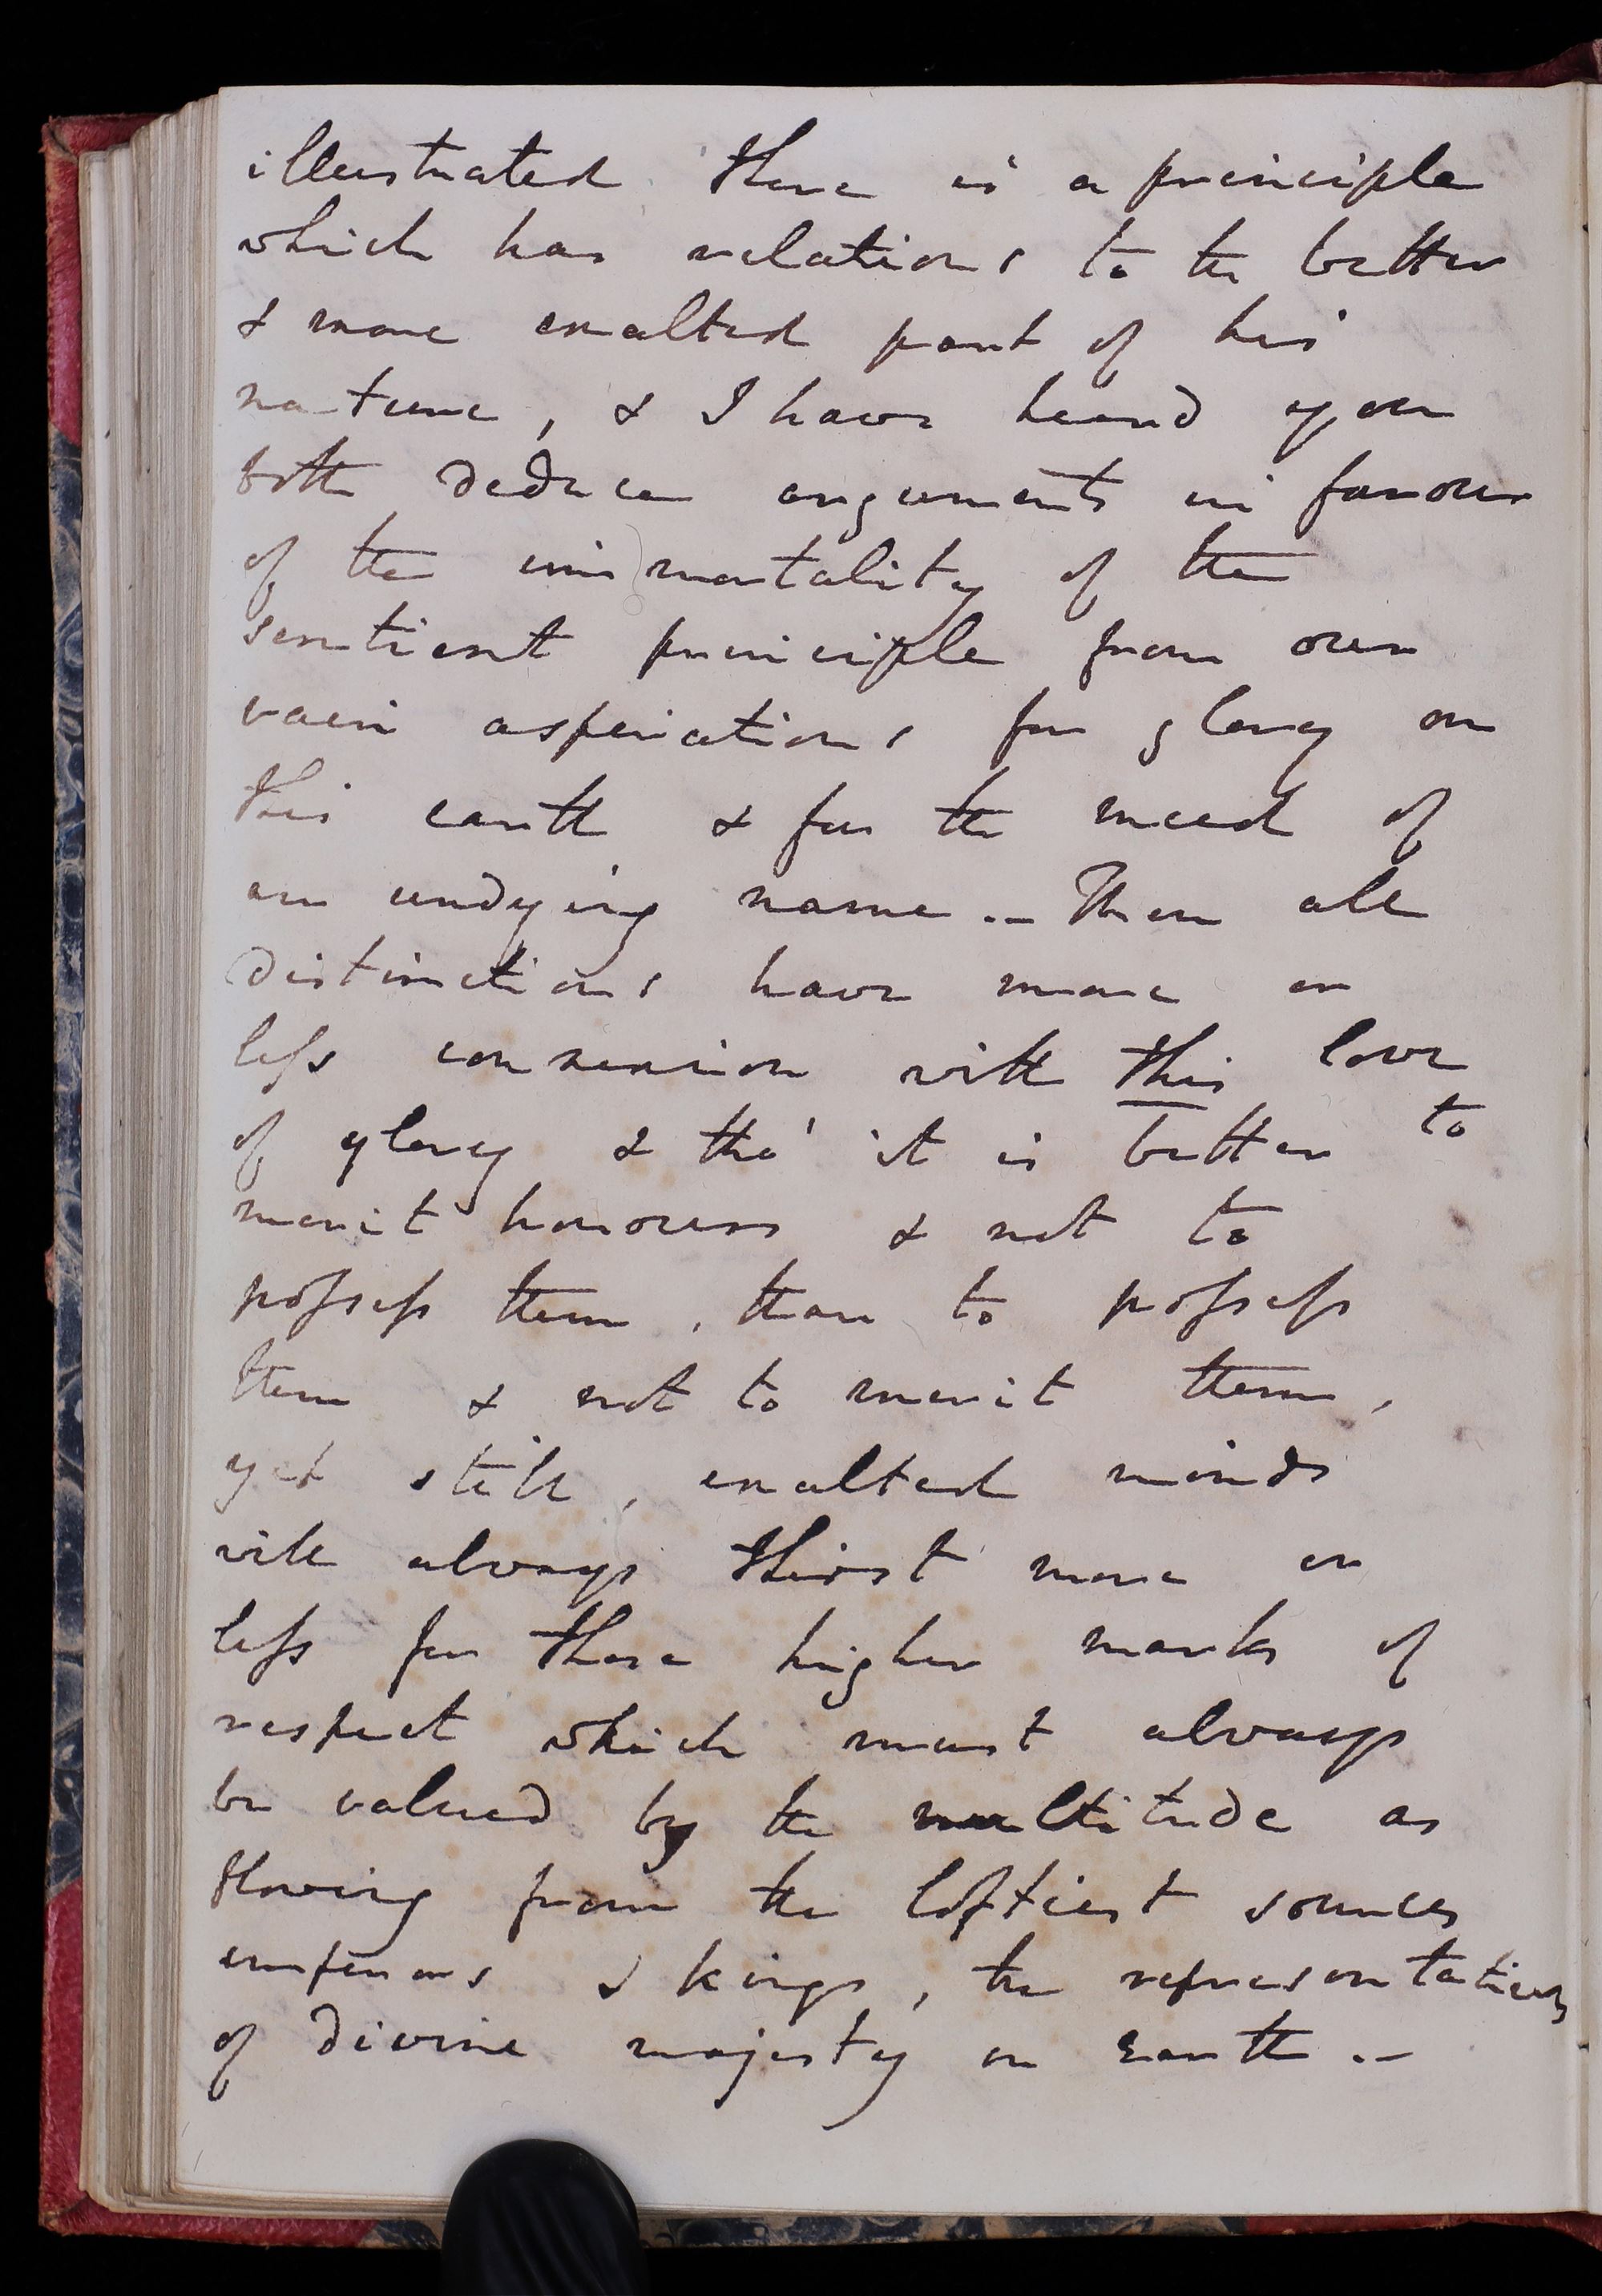 illustrated there is a principle
which has relations to the better
& more exalted part of his
nature, & I have heard you
both deduce arguments in favour
of the immortality of the
sentient principle from our
vain aspirations for glory on
this earth & for the meed of
an undying name.– Then all
distinctions have more or
less connexion with this love
of glory & tho' it is better to
merit honours & not to
possess them, than to possess
them & not to merit them,
yet still, exalted minds
will always thirst more or
less for those higher marks of
respect which must always
be valued by the multitude as
flowing from the loftiest sources
emperors & kings, the representatives
of divine majesty on Earth.–